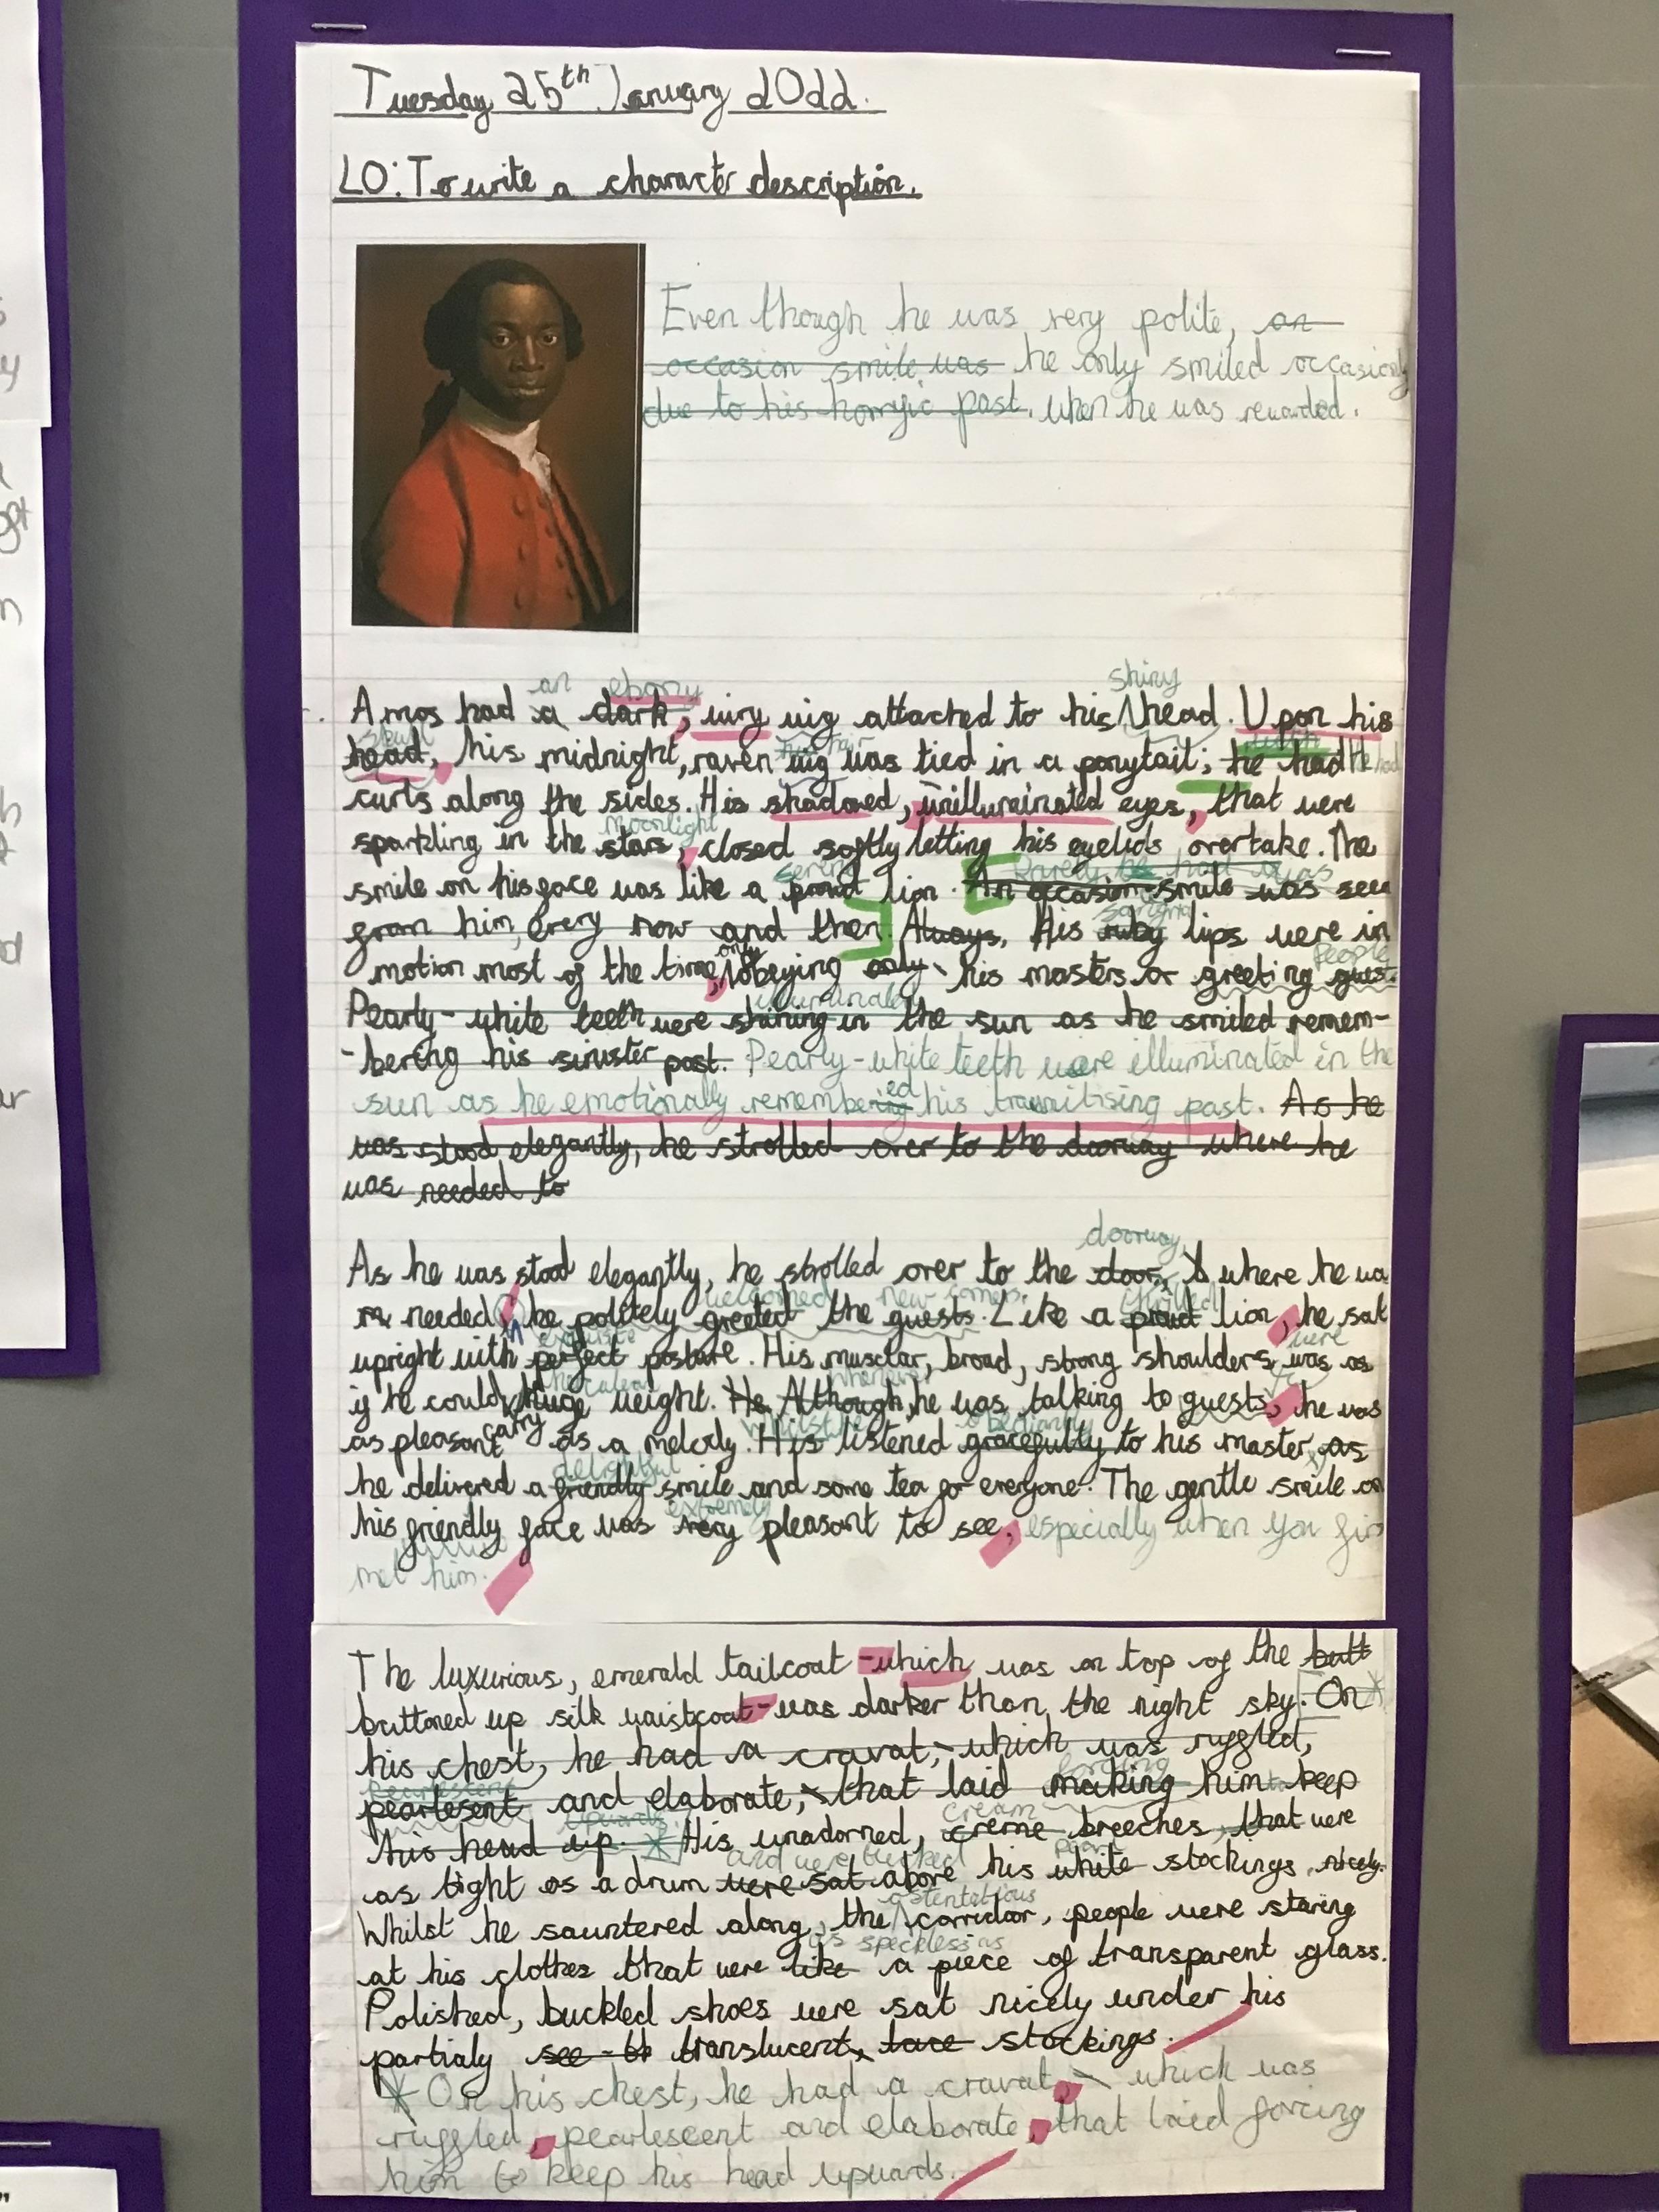 Tuesday 25th January 2022.
LO: To write a character description.
Even though he was very polite, an
occasion smile was he only smiled occasionly
due to his horrific past. when he was rewarded.
an ebony shiny
Amos had a dark, wiry wig attached to his head. Upon his
skull
head, his midnight, raven wig was tied in a ponytail; he had He had
curls along the sides. His shadowed, unilluminated eyes, that were
moonlight
sparkling in the stars, closed softly letting his eyelids overtake. The
serene Rarely he had
smile on his face was like a proud lion. An occasion smile was seen
sangria
from him, every now and then. Always, His ruby lips were in
only people
motion most of the time, obeying only his masters or greeting guest
Pearly-white teeth were shining in the sun as he smiled remem-
-bering his sinister past. Pearly-white teeth were illuminated in the
ed
sun as he emotionally remembering his traumitising past. As he
was stood elegantly, he strolled over to the doorway where he
was needed to
doorway,
As he was stood elegantly, he strolled over to the door, where he wa
welcomed new comers.
needed, he politely greeted the guests. Like a proud lion, he sat
exquisite were
upright with perfect posture. His musclar, broad, strong shoulders was as
herculean whenever
if he could huge weight. He Although, he was talking to guests, he was
carry Whilst he obediantly
as pleasant as a melody. His listened gracefully to his master, as
delightful
he delivered a friendly smile and some tea for everyone. The gentle smile on
extremely
his friendly face was very pleasant to see, especially when you firs
met him.
The luxurious, emerald tailcoat -which was on top of the butt
buttoned up silk waistcoat- was darker than the night sky. On
his chest, he had a cravat, - which was ruffled,
pearlescent forcing
pearlesent and elaborate, - that laid making him to keep
upwards. cream
his head up. * His unadorned, creme breeches, that were
and were tucked pearl
as tight as a drum were sat above his white stockings nicely.
ostentatious
Whilst he sauntered along, the corridor, people were staring
as speckless as
at his clothes that were like a piece of transparent glass.
Polished, buckled shoes were sat nicely under his
partialy see-th translucent, lace stockings.
* On his chest, he had a cravat, - which was
ruffled, pearlescent and elaborate, that laid forcing
him to keep his head upwards.